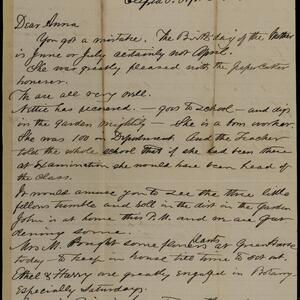 Dear Anna
You got a mistake. The Birthday of the Mother
is June or July certainly not April.
She was greatly pleased with the paper cutter
however.
We are all very well.
Nettie has recovered — goes to school — and digs
in the garden mightily — She is a born worker.
She was 100 in Deportment. And the Teacher
told the whole school that if she had been there
at Examination she would have been head of
the Class.
It would amuse you to see the three little
fellows tremble and roll in the dirt in the Garden
John is at home this P.M. and we are gar
dening some.
Mrs M. bought some plants at Green House
today — to keep in house till time to set out.
Ethel & Harry are greatly engaged in Botany
Especially Saturdays.